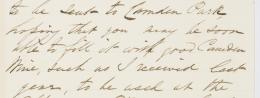 to be sent to Camden Park,
hoping that you may be soon
able to fill it with good Camden
Wine, such as I received last
year, to be used at the